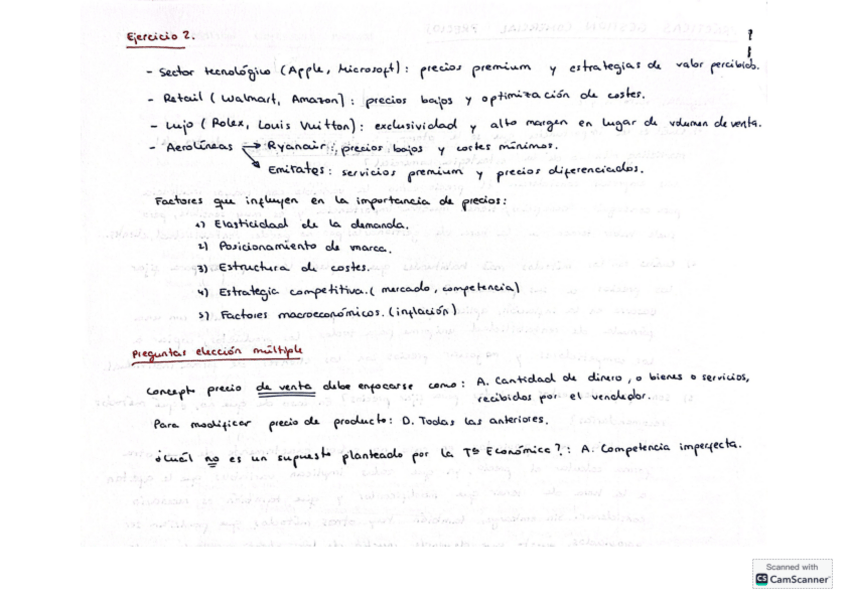 Ejercicio 2.
- Sector tecnológico (Apple, Microsoft): precios premium y estrategias de valor percibido.
- Retail (Walmart, Amazon): precios bajos y optimización de costes.
- Lujo (Rolex, Louis Vuitton): exclusividad y alto margen en lugar de volumen de venta.
- Aerolíneas → Ryanair: precios bajos y costes mínimos.
↘ Emirates: servicios premium y precios diferenciados.
Factores que influyen en la importancia de precios:
1) Elasticidad de la demanda.
2) Posicionamiento de marca.
3) Estructura de costes.
4) Estrategia competitiva. (mercado, competencia)
5) Factores macroeconómicos. (inflación)
Preguntas elección múltiple
Concepto precio de venta debe enfocarse como: A. Cantidad de dinero, o bienes o servicios,
recibidos por el vendedor.
Para modificar precio de producto: D. Todas las anteriores.
¿Cuál no es un supuesto planteado por la Tª Económica?: A. Competencia imperfecta.
Scanned with
CS CamScanner